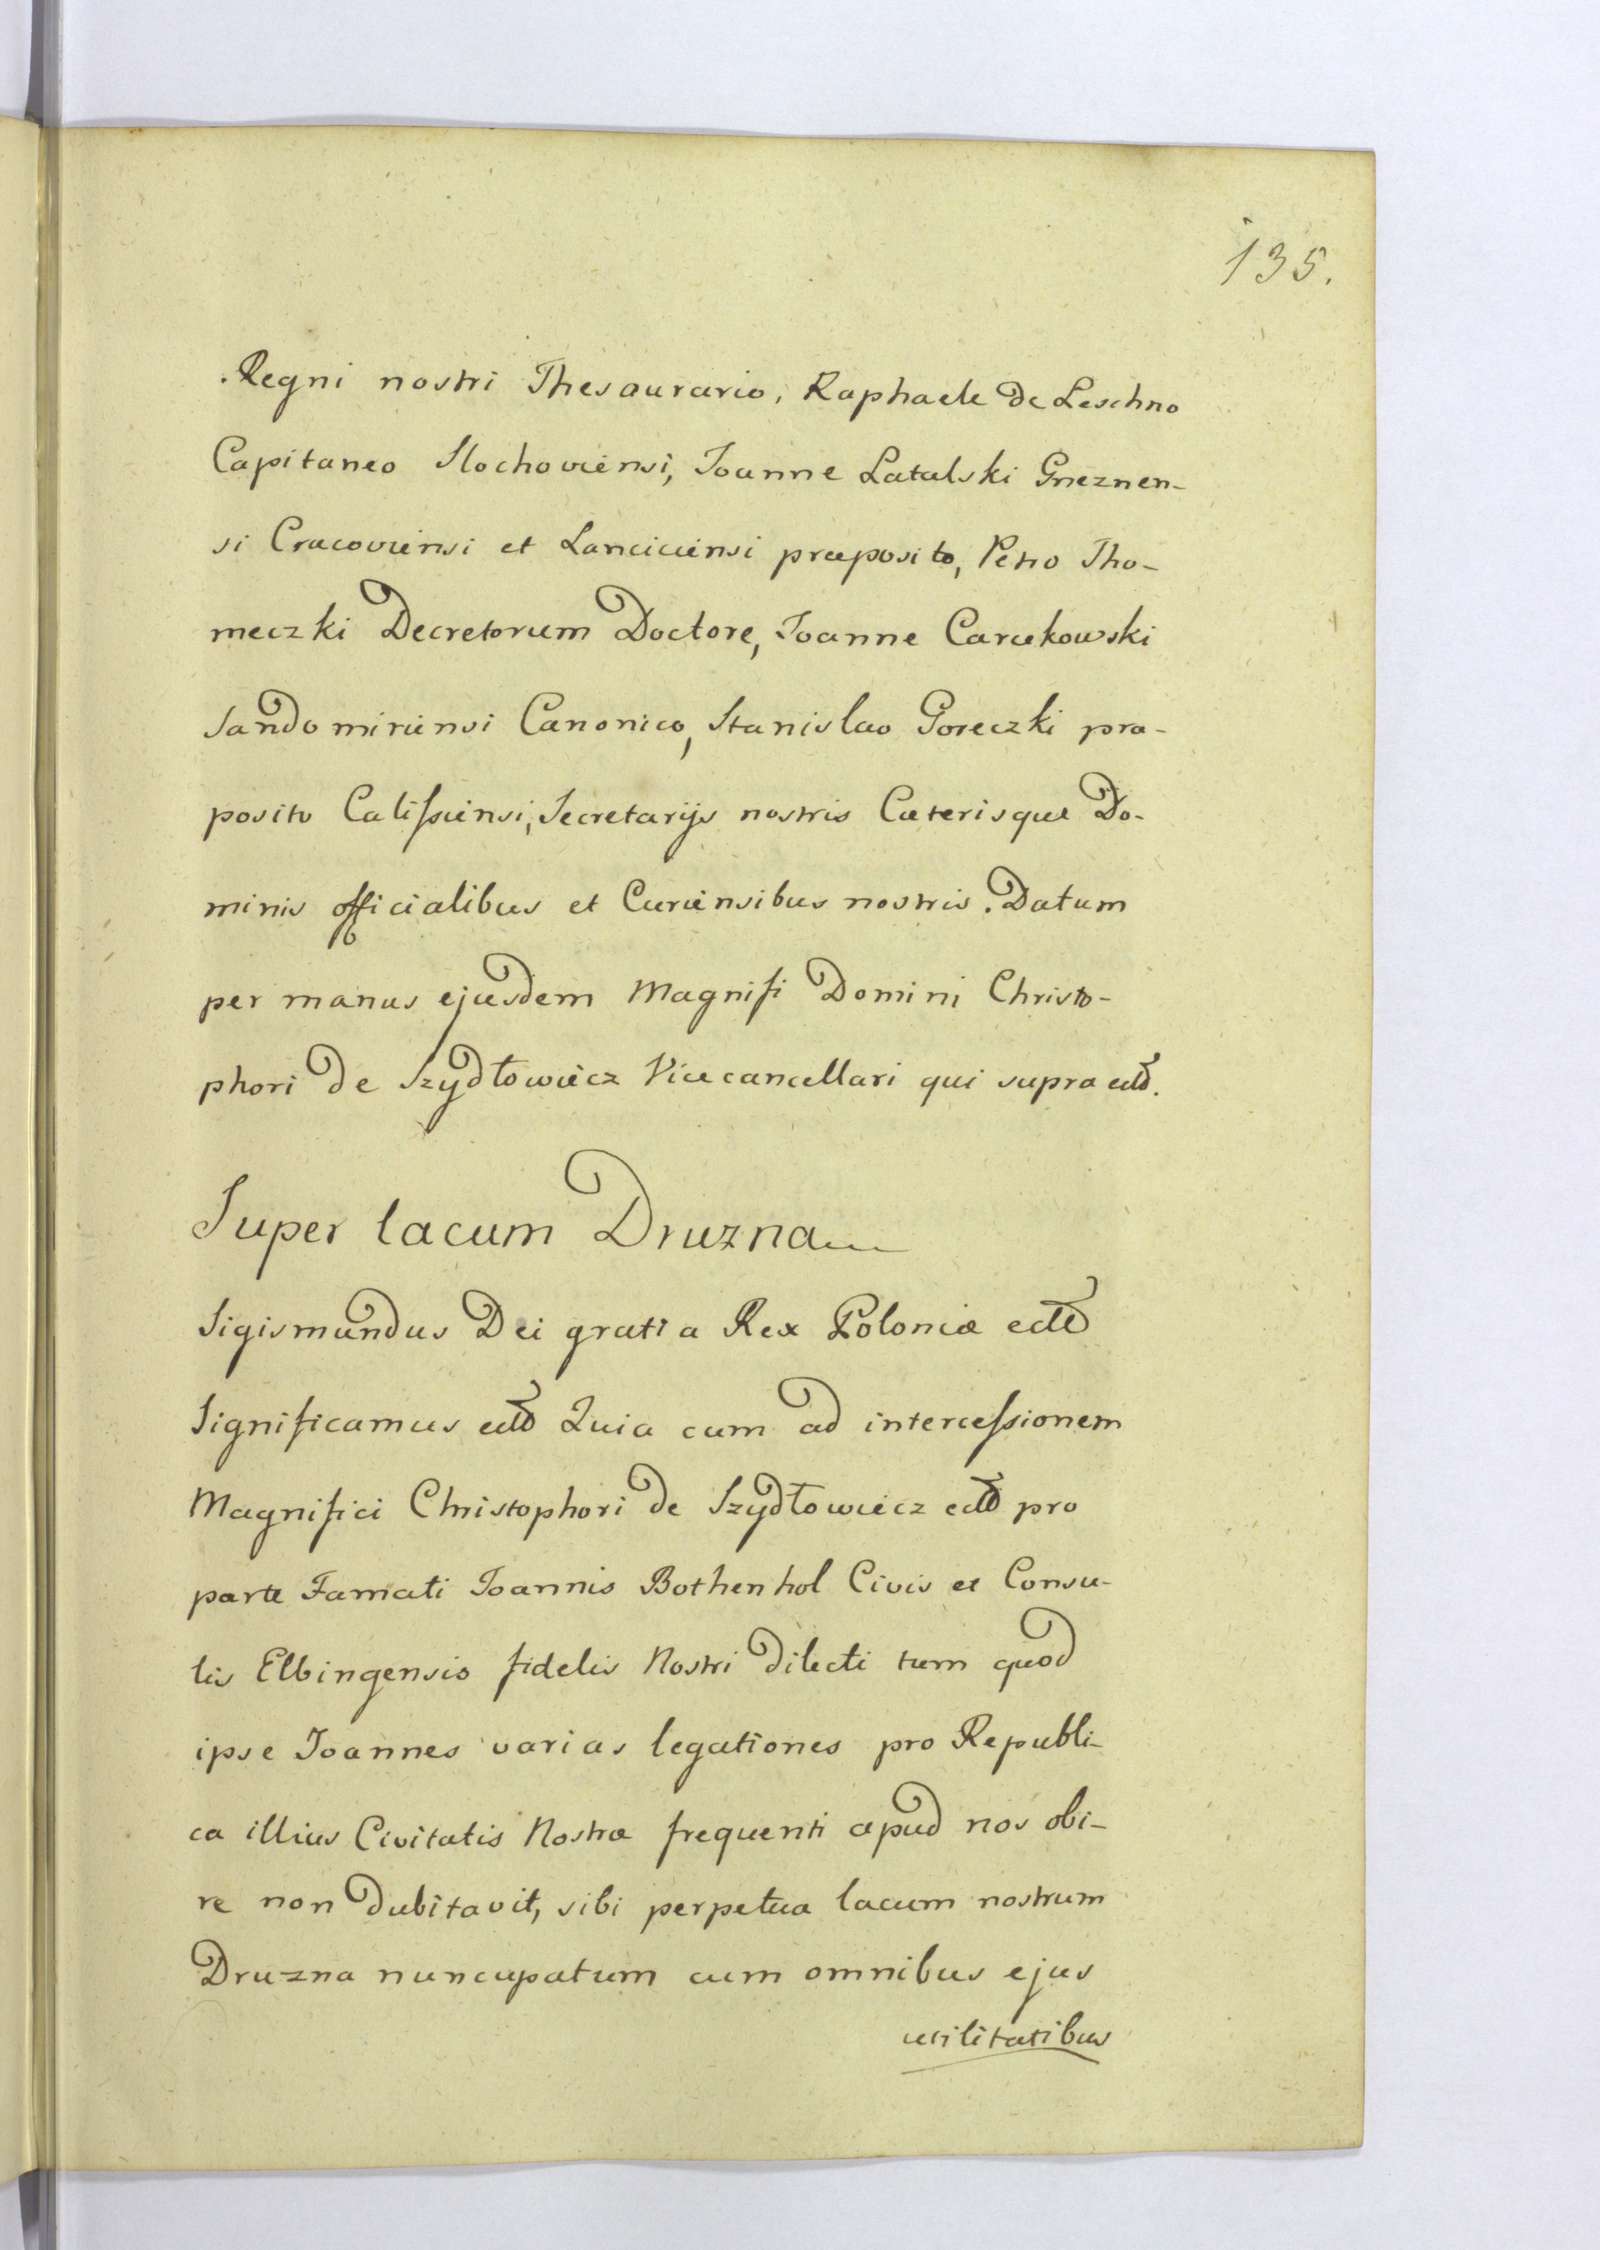 135.
Regni nostri Thesaurario, Raphaele de Leschno
Capitaneo Slochoviensi, Joanne Latalski Gneznen-
si Cracoviensi et Lanciciensi præposito, Petro Tho-
meczki Decretorum Doctore, Joanne Carukowski
Sandomiriensi Canonico, Stanislao Goreczki præ-
posito Calissiensi, Secretarijs nostris Cæterisque Do-
minis officialibus et Curiensibus nostris. Datum
per manus ejusdem Magnifi Domini Christo-
phori de Szydłowiecz Vicecancellari qui supra ectt.
Super lacum Druzna
Sigismundus Dei gratia Rex Poloniæ ectt
Significamus ectt Quia cum ad intercessionem
Magnifici Christophori de Szydłowiecz ectt pro
parte Famati Joannis Bothenhol Civis et Consu-
lis Elbingensis fidelis Nostri dilecti tum quod
ipse Joannes varias legationes pro Republi-
ca illius Civitatis Nostræ frequenti apud nos obi-
re non dubitavit, sibi perpetua lacum nostrum
Druzna nuncupatum cum omnibus ejus
utilitatibus